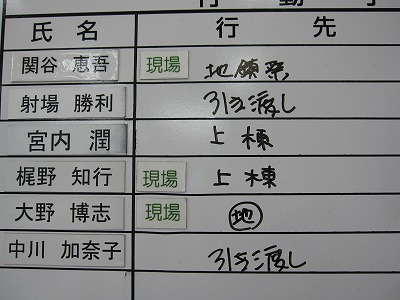 行動予
氏名 行先
関谷 恵吾 現場 地鎮祭
射場 勝利 引き渡し
宮内 潤 上棟
梶野 知行 現場 上棟
大野 博志 現場 地
中川 加奈子 引き渡し